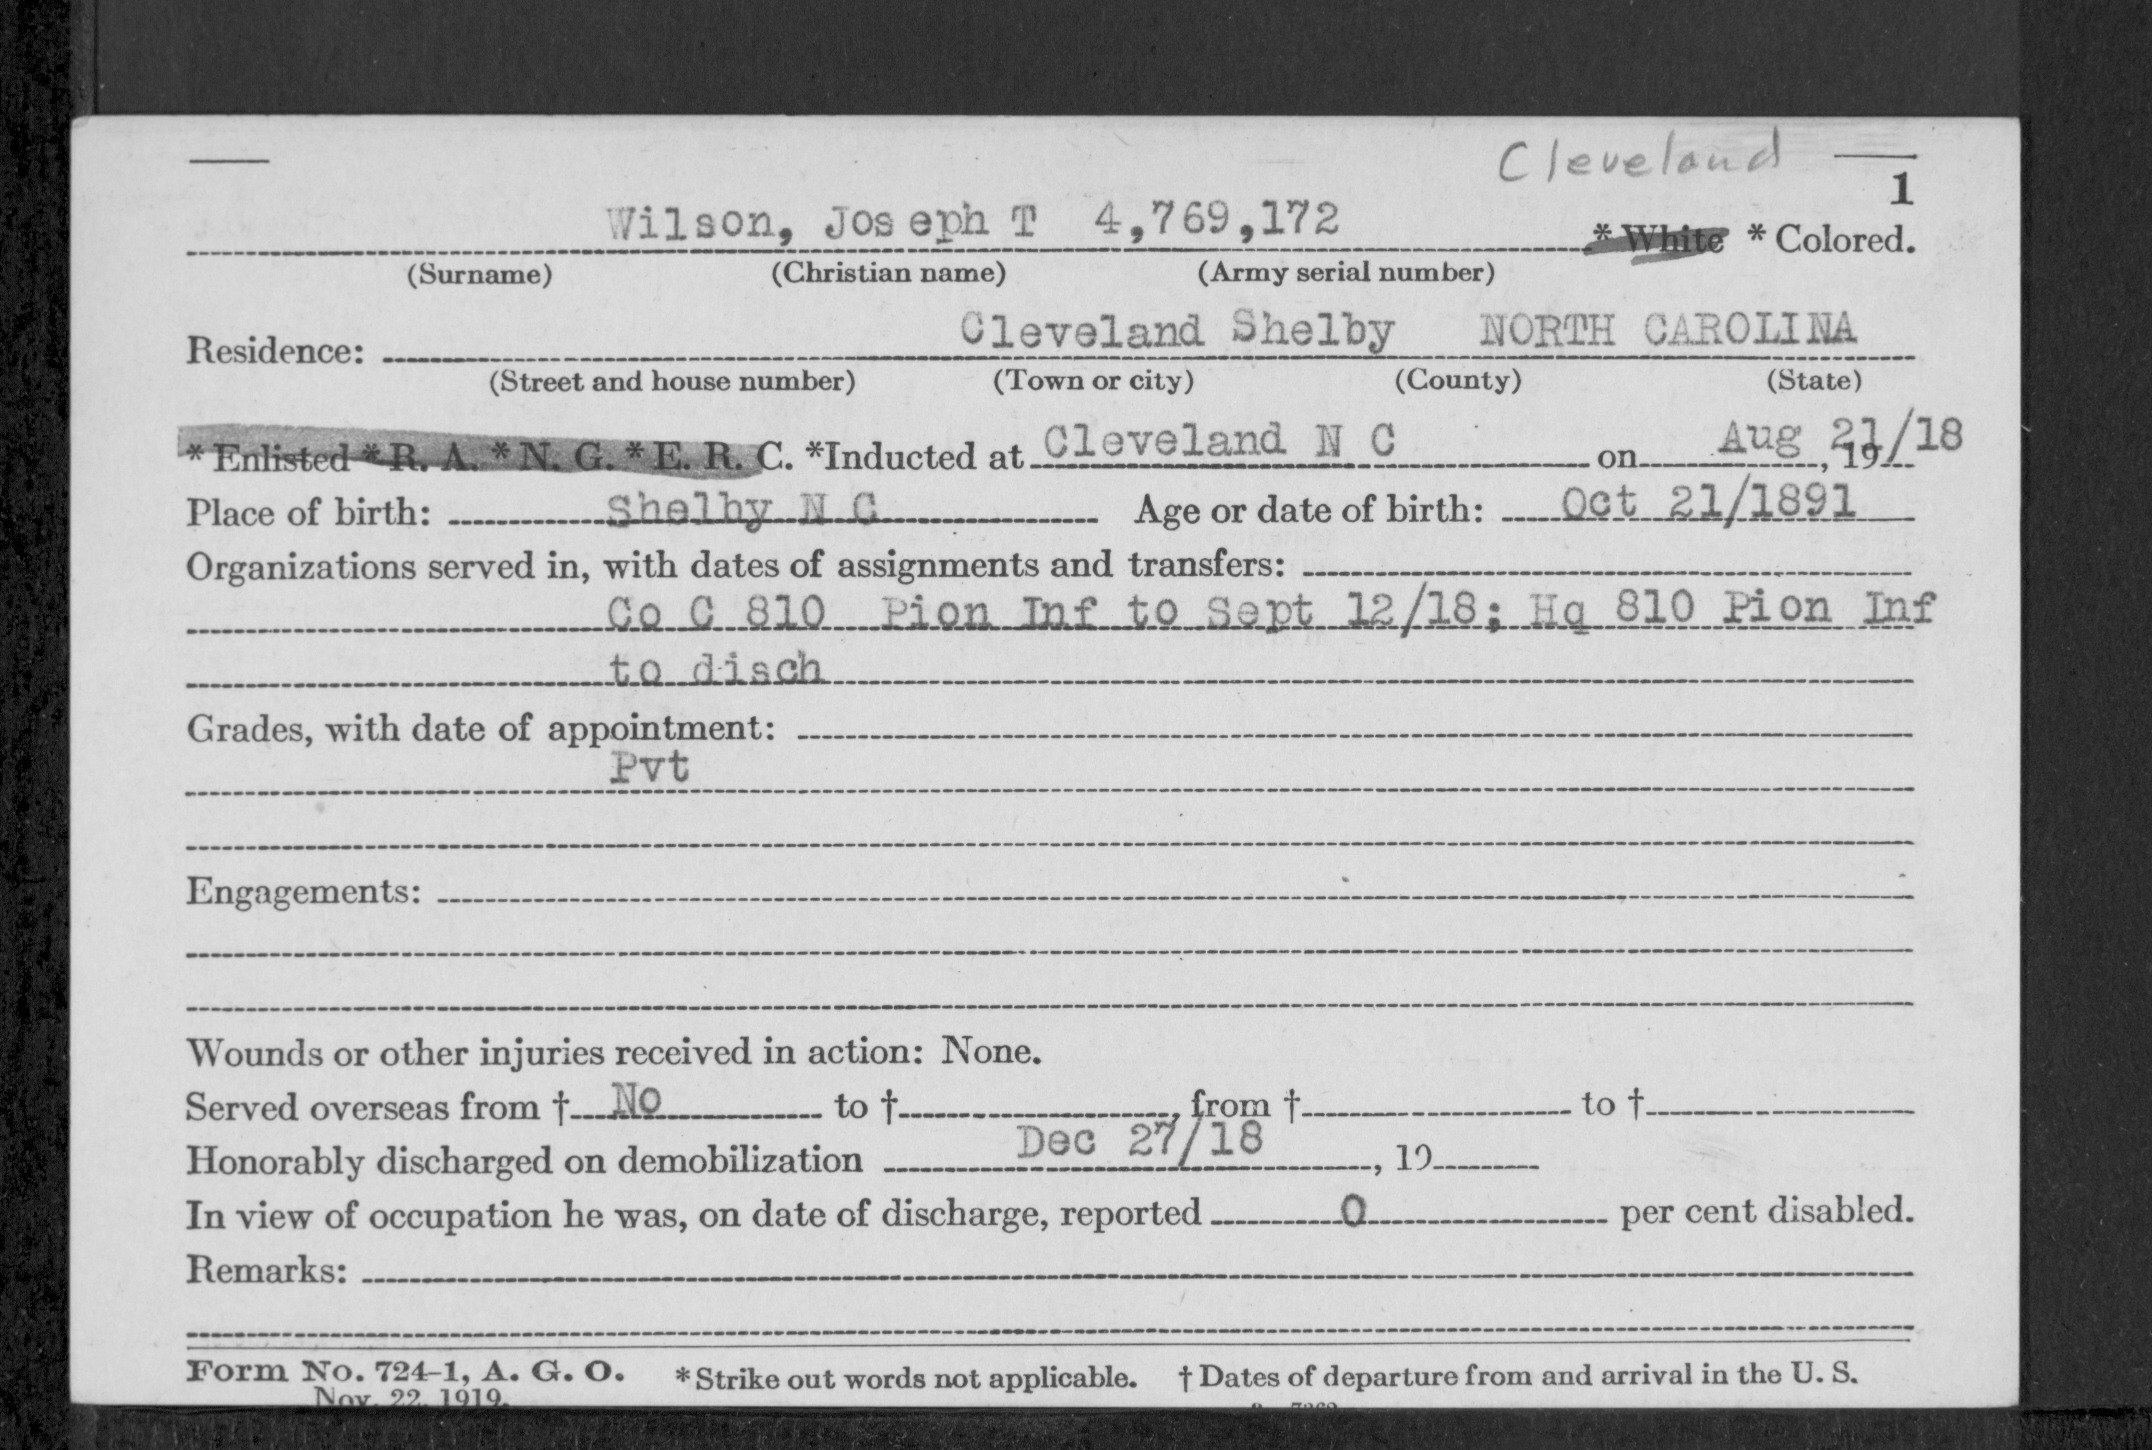 Cleveland
1
Wilson, Joseph T 4,769,172 * White * Colored.
(Surname) (Christian name) (Army serial number)
Residence: Cleveland Shelby NORTH CAROLINA
(Street and house number) (Town or city) (County) (State)
* Enlisted * R. A. * N. G. * E. R. C. *Inducted at Cleveland N C on Aug 21/18, 19
Place of birth: Shelby N C Age or date of birth: Oct 21/1891
Organizations served in, with dates of assignments and transfers:
Co C 810 Pion Inf to Sept 12/18; Hq 810 Pion Inf
to disch
Grades, with date of appointment:
Pvt
Engagements:
Wounds or other injuries received in action: None.
Served overseas from † No to †, from † to †
Honorably discharged on demobilization Dec 27/18, 19
In view of occupation he was, on date of discharge, reported 0 per cent disabled.
Remarks:
Form No. 724-1, A. G. O. * Strike out words not applicable. † Dates of departure from and arrival in the U. S.
Nov. 22, 1919.